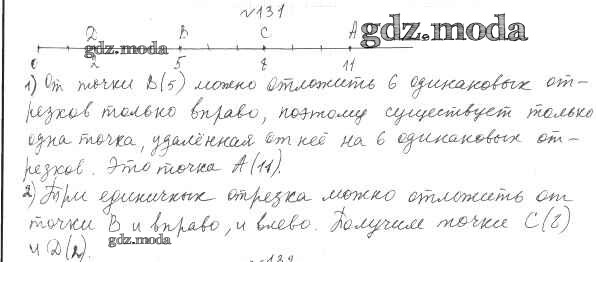 №131
2 B C A gdz.moda
gdz.moda
0 2 5 8 11
1) От точки B(5) можно отложить 6 одинаковых от-
резков только вправо, поэтому существует только
одна точка, удалённая от неё на 6 одинаковых от-
резков. Это точка A(11).
2) Три единичных отрезка можно отложить от
точки B и вправо, и влево. Получим точки C(8)
и D(2).
gdz.moda